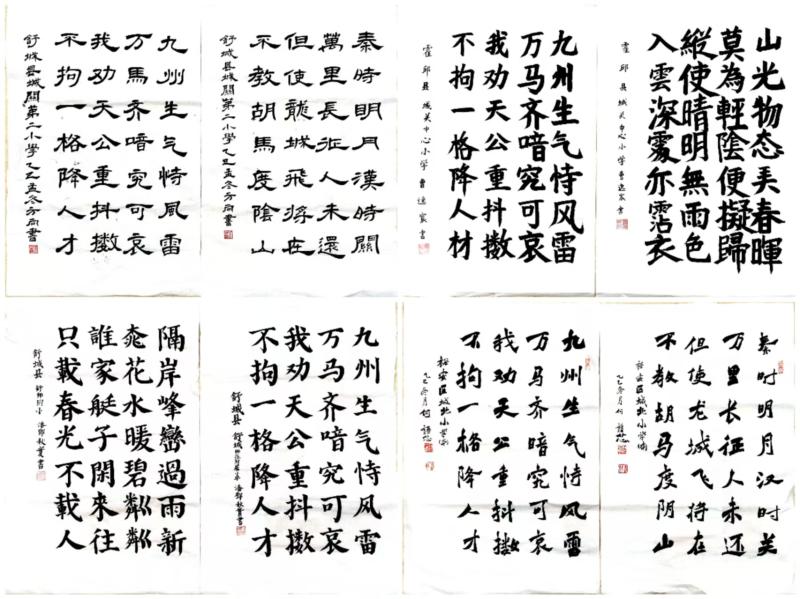 九州生气恃風雷
万馬齐喑究可哀
我劝天公重抖擞
不拘一格降人才
舒城县城關第二小學乙巳孟冬方雨書
秦時明月漢時關
萬里長征人未還
但使龍城飛將在
不教胡馬度陰山
舒城县城關第二小學乙巳孟冬方雨書
九州生气恃风雷
万马齐喑究可哀
我劝天公重抖擞
不拘一格降人材
霍邱县城关中心小学曹逸宸書
山光物态弄春暉
莫為輕陰便擬歸
縱使晴明無雨色
入雲深處亦霑衣
霍邱县城关中心小学曹逸宸書
隔岸峰巒過雨新
桃花水暖碧粼粼
誰家艇子閑來往
只載春光不載人
舒城县 舒師附小 潘郢秋實書
九州生气恃风雷
万马齐喑究可哀
我劝天公重抖擞
不拘一格降人才
舒城县 潘郢秋實書
九州生气恃风雷
万马齐喑究可哀
我劝天公重抖擞
不拘一格降人才
裕安区城北小学
乙巳冬月何語芯
秦时明月汉时关
万里长征人未还
但使龙城飞将在
不教胡马度阴山
裕安区城北小学
乙巳冬月何語芯